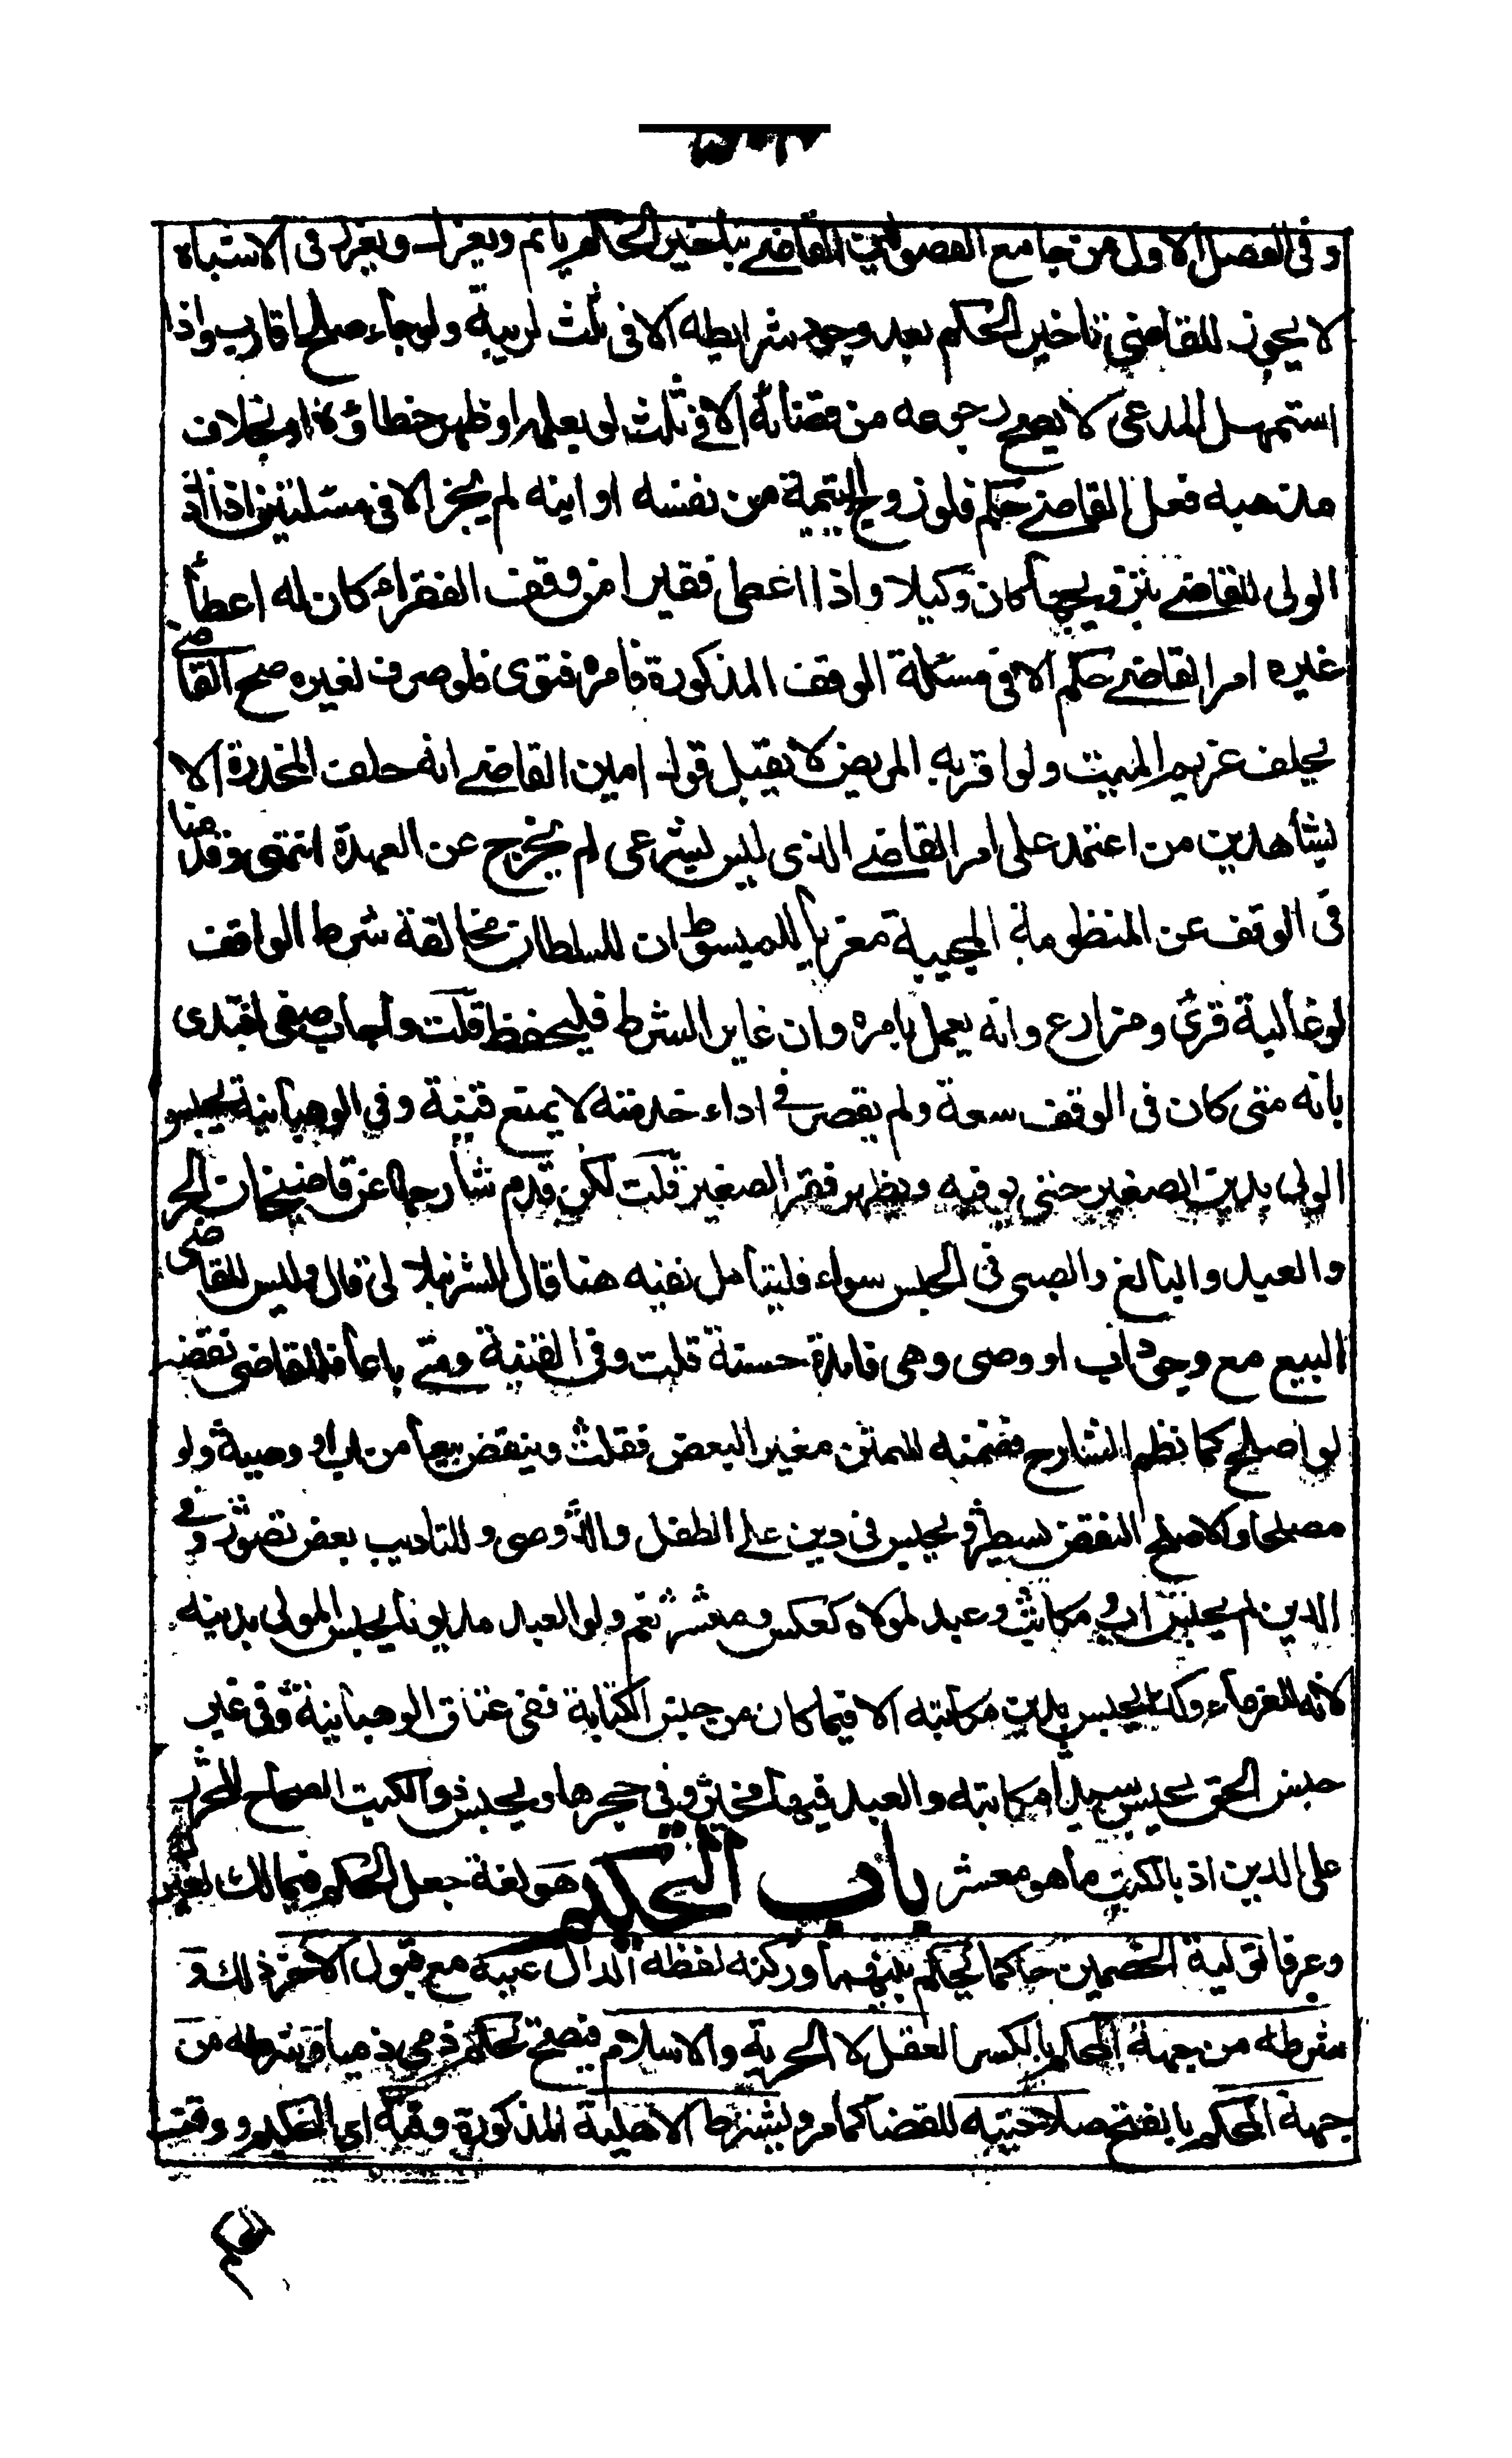 وفي الفصل الاول من جامع الفصولين القاضي بتاخير الحكم ياثم ويعزل ويعزر في الاشباه
لا يجوز للقاضي تاخير الحكم بعد وجود شرايطه الا في ثلث لريبة ولرجاء صلح اقارب واذا
استمهل المدعي لا يصح رجوعه من قضائه الا في ثلث لو بعلمه او ظهر خطاؤه او بخلاف
مذهبه فعل القاضي حكم فلو زوج اليتيمة من نفسه او ابنه لم يجز الا في مسئلتين اذا اذن
الولي للقاضي بتزويجها كان وكيلا واذا اعطى فقيرا من وقف الفقراء كان له اعطأ
غيره امر القاضي حكم الا في مسئلة الوقف المذكورة فامره فتوى فلو صرف لغيره صح القاضي
يحلف غريم الميت ولو اقر به المريض لا يقبل قول امين القاضي انه حلف المخدرة الا
بشاهدين من اعتمد على امر القاضي الذي ليس بشرعي لم يخرج عن العهدة انتهى وقدمنا
في الوقف عن المنظومة المحبية معزيا للمبسوط ان للسلطان مخالفة شرط الواقف
لو غالبه قرى ومزارع وانه يعمل بامره وان غاير الشرط فليحفظ قلت واجاب صنعي افندي
بانه متى كان في الوقف سعة ولم يقصر في اداء خدمته لا يمنع فتنبه وفي الوهبانية يحبس
الولي بدين الصغير حتى يوفيه ويظهر فقر الصغير قلت لكن قدم شارحها عن قاضيخان الحر
والعبد والبالغ والصبي في الحبس سواء فليتامل نفيه هنا قال الشرنبلالي قال وليس للقاضي
البيع مع وجود اب او وصي وهي فايدة حسنة قلت وفي القنية ومتى باعا فللقاضي نقضه
لو اصلح كما نظمه الشارح فضمنه للمتن مغير البعض فقلت وينقض بيعا من اب او وصيه ولو
مصلحا والاصلح النقض يسطر ويحبس في دين على الطفل والد وصي وللتاديب بعض تصور وفي
الدين لم يحبس اب ومكاتب وعبد لمولاه كعكس ومعشر نعم ولو العبد مديونا يحبس المولى بدينه
لانه للغرماء وكذا يحبس بدين مكاتبه الا فيما كان من جنس الكتابة ففي عتاق الوهبانية وفي غير
جنس الحق يحبس سيدا مكاتبه والعبد فيها مخير وفي حجرها ويحبس ذو الكتب الصحاح المحرر
على الدين اذ بالكتب ما هو معسر باب التحكيم هو لغة جعل الحكم فيما لك لغير
وعرفا تولية الخصمين حاكما يحكم بينهما وركنه لفظه الدال عليه مع قبول الاخر ذلك و
شرطه من جهة المحكم بالكسر العقل لا الحرية والاسلام فيصح تحكيم ذمي ذميا وشرطه من
جهة المحكم بالفتح صلاحيته للقضا كما مر ويشترط الاهلية المذكورة وقته اي التحكيم ووقت